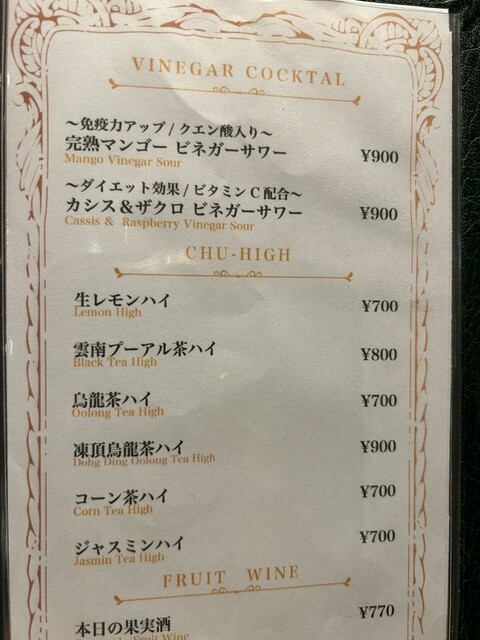 VINEGAR COCKTAL
～免疫力アップ / クエン酸入り～
完熟マンゴー ビネガーサワー ¥900
Mango Vinegar Sour
～ダイエット効果 / ビタミンC配合～
カシス＆ザクロ ビネガーサワー ¥900
Cassis & Raspberry Vinegar Sour
CHU-HIGH
生レモンハイ ¥700
Lemon High
雲南プーアル茶ハイ ¥800
Black Tea High
烏龍茶ハイ ¥700
Oolong Tea High
凍頂烏龍茶ハイ ¥900
Dong Ding Oolong Tea High
コーン茶ハイ ¥700
Corn Tea High
ジャスミンハイ ¥700
Jasmin Tea High
FRUIT WINE
本日の果実酒 ¥770
Fruit Wine